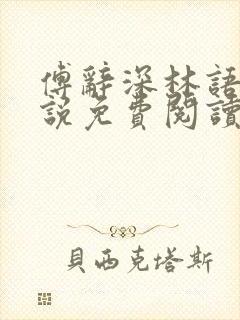 傅辭深林語
說免費閱讀
貝西克塔斯